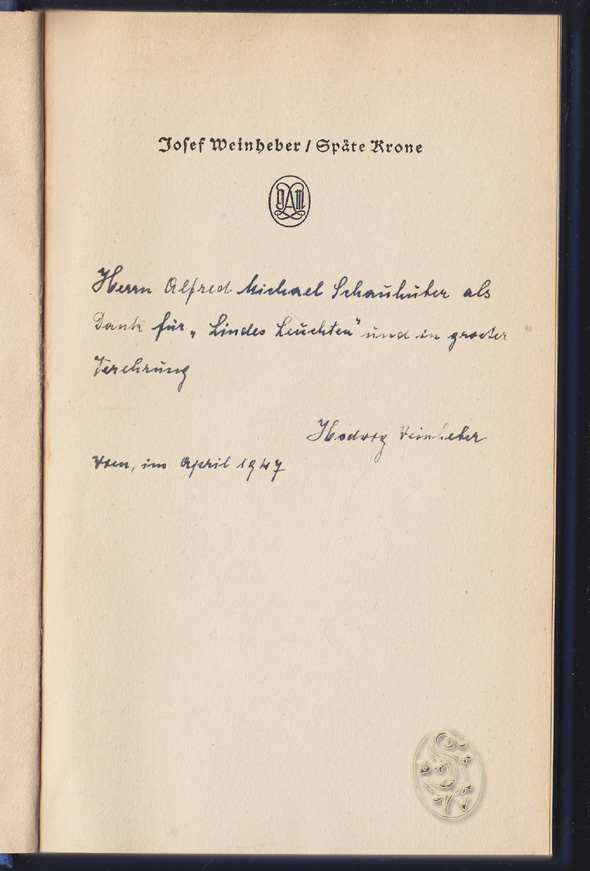 Josef Weinheber / Späte Krone
Herrn Alfred Michael Schauhuber als
Dank für „Lindes Leuchten" und in groeter
Verehrung
Hedwig Weinheber
Wien, im April 1947